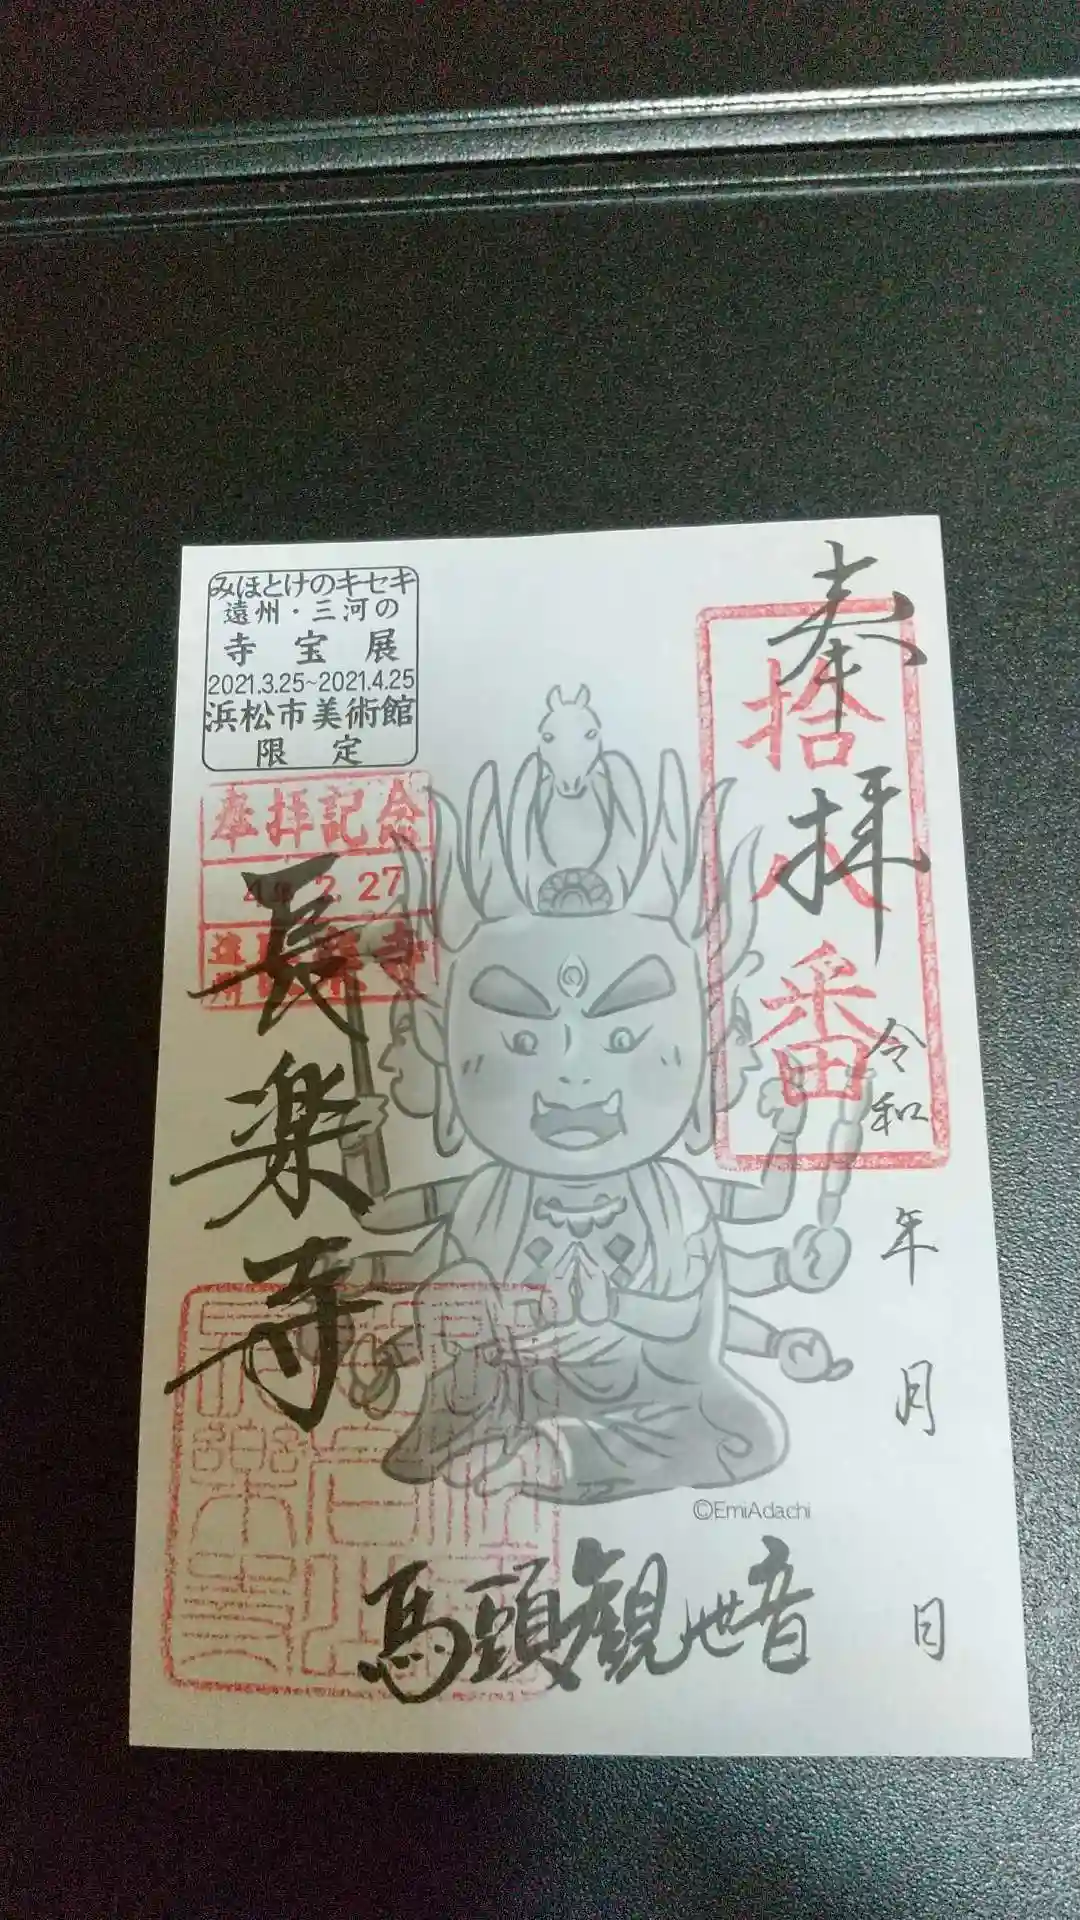 みほとけのキセキ
遠州・三河の
寺宝展
2021.3.25~2021.4.25
浜松市美術館
限定
奉拝
拾八番
令和 年 月 日
奉拝記念
2.27
長楽寺
©EmiAdachi
馬頭観世音